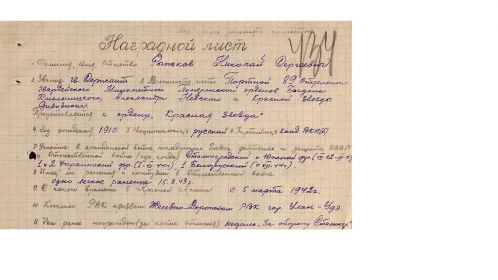 434
Наградной лист
1 Фамилия, имя, Отчество Рыжков Николай Сергеевич
2 Звание гв. Сержант 3 Должность, часть Портной 89 Отдельного
гвардейского Минометного Лондинского орденов Богдана
Хмельницкого, Александра Невского и Красной Звезды
Дивизиона.
Представляется к ордену "Красная Звезда"
4 Год рождения 1910 5 Национальность русский 6 Партийность канд ВКП(б)
7 Участие в гражданской войне, последующих боевых действиях по защите СССР
и Отечественной войне (где, когда) Сталинградский и Южный фр
1 и 2 Украинский фр 1 Белорусский
8 Имеет ли ранения и контузии в Отечественной войне
одно легкое ранение 15.8.43г.
9 С какого времени в Красной Армии с 5 марта 1942г.
10 Каким РВК призван Железно-Дорожным РВК гор. Улан-Удэ.
11 Чем ранее награжден (за какие отличия) медаль "За оборону Сталинг"